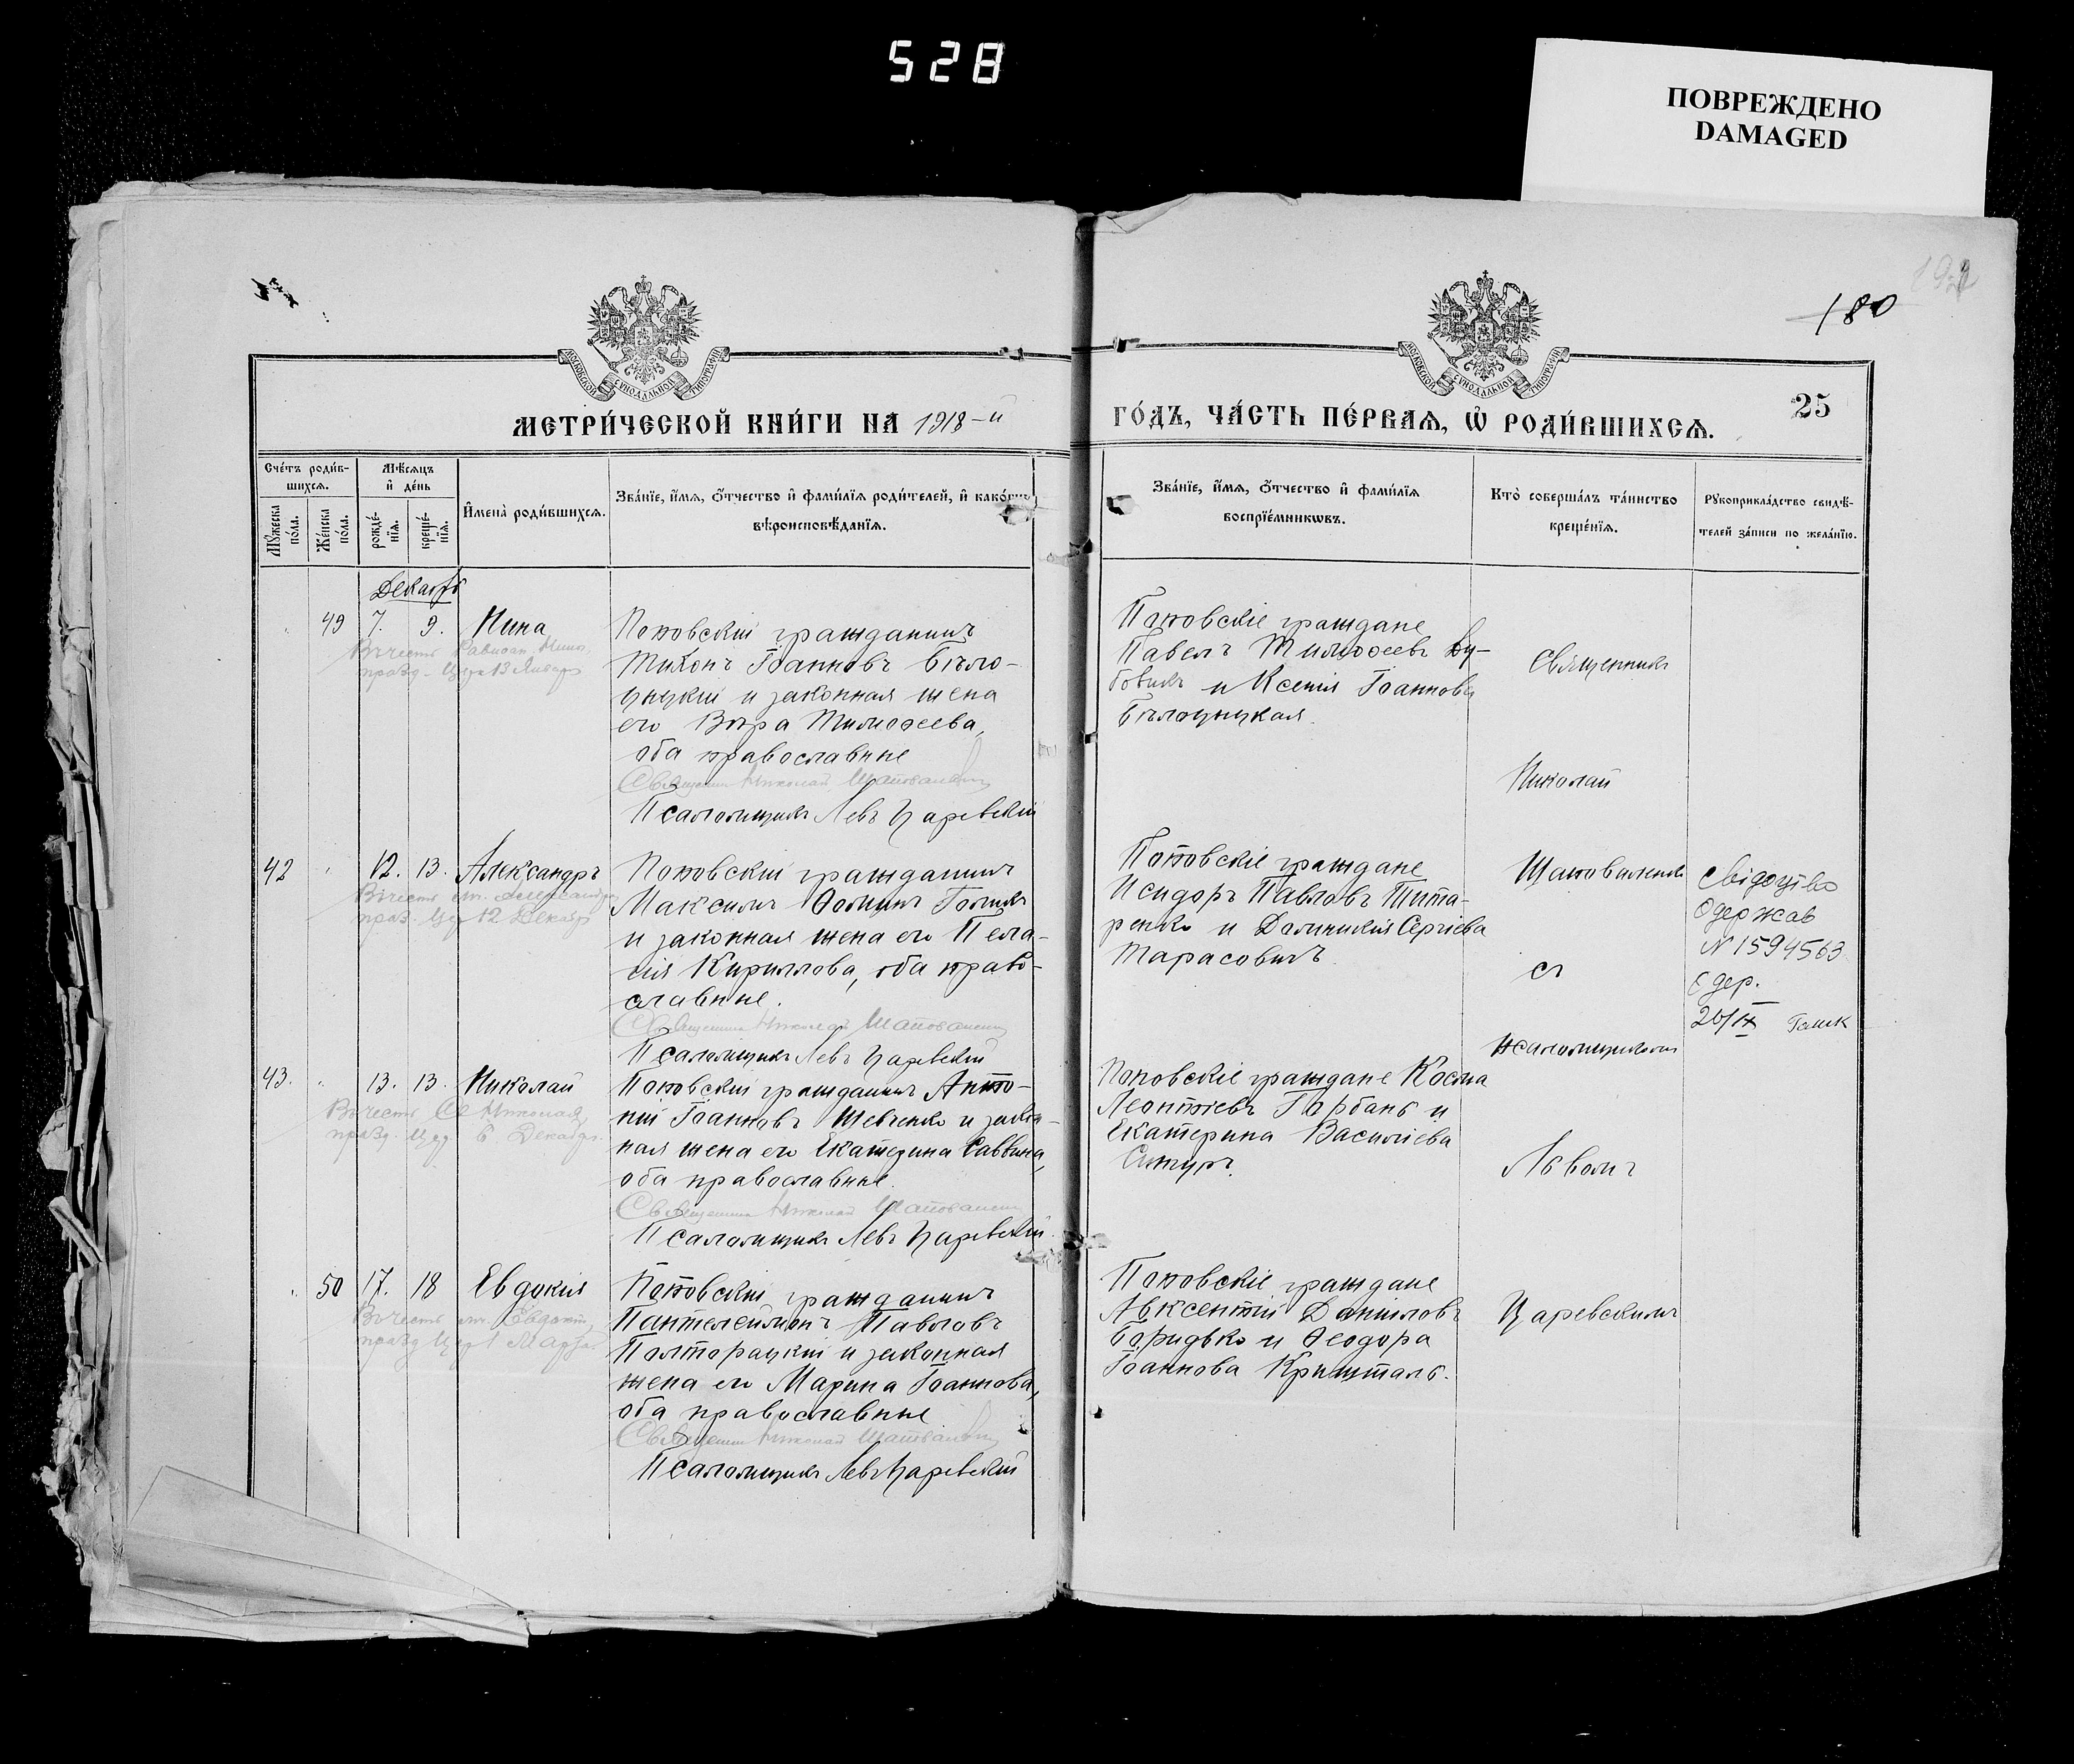 528
ПОВРЕЖДЕНО
DAMAGED
180
25
МЕТРИ́ЧЕСКОЙ КНИ́ГИ НА 1918-й
ГО́ДЪ, ЧА́СТЬ ПЕ́РВАѦ, Ѡ҆ РОДИ́ВШИХСѦ.
Сче́тъ роди́в-
шихсѧ.
Мѣ́сѧцъ
и҆ де́нь
Мꙋ́жеска
по́ла.
Же́нска
по́ла.
рожде́-
нїѧ.
креще́-
нїѧ.
И҆мена̀ роди́вшихсѧ.
Зва́нїе, и҆́мѧ, ѻ҆́тчество и҆ фами́лїѧ роди́телей, и҆ како́гѡ
вѣроисповѣ́данїѧ.
Зва́нїе, и҆́мѧ, ѻ҆́тчество и҆ фами́лїѧ
воспрїе́мникѡвъ.
Кто̀ соверша́лъ та́инство
креще́нїѧ.
Рꙋкоприкла́дство свидѣ́-
телей за́писи по жела́нїю.
Декабрь
49 7. 9. Нина
праздн. Церк 13 Января
Поповскій гражданинъ
Тихонъ Іоанновъ Бѣло-
цуцкій и законная жена
его Вѣра Тимоѳеева,
оба православные
Священникъ Николай Шаповаленко
Псаломщикъ Левъ Царевскій
Поповскіе граждане
Павелъ Тимоѳеевъ Ду-
бовикъ и Ксенія Іоаннова
Бѣлоцуцкая.
Священникъ
Николай
42 12. 13. Александръ
праз. Цер 12 Декабр
Поповскій гражданинъ
Максимъ Ѳоминъ Голикъ
и законная жена его Пела-
гія Кириллова, оба право-
славные.
Священникъ Николай Шаповаленко
Псаломщикъ Левъ Царевскій
Поповскіе граждане
Исидоръ Павловъ Тита-
ренко и Домникія Сергіева
Тарасовичъ.
Шаповаленко
съ
псаломщикомъ
Свідоцтво
Одержав
N 1594563
Одер.
20/IX
43. 13. 13. Николай
Въ честь Св Николая,
празд. Цер 6 Декабря.
Поповскій гражданинъ Анто-
ній Іоанновъ Шевченко и закон-
ная жена его Екатерина Саввина,
оба православные.
Священникъ Николай Шаповаленко
Псаломщикъ Левъ Царевскій
Поповскіе граждане Косма
Леонтіевъ Горбань и
Екатерина Василіева
Львомъ
50 17. 18 Евдокія
празд Цер 1 Марта
Поповскій гражданинъ
Пантелеймонъ Павловъ
Полторацкій и законная
жена его Марина Іоаннова,
оба православные
Священникъ Николай Шаповаленко
Псаломщикъ Левъ Царевскій
Поповскіе граждане
Авксентій Даніиловъ
Боридько и Ѳеодора
Іоаннова Кришталь.
Царевскимъ